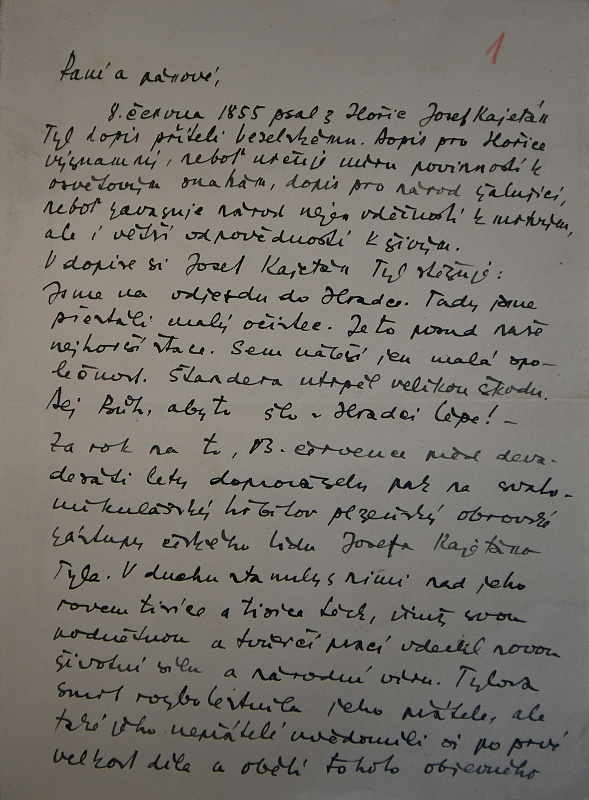 1
Paní a pánové,
8. června 1855 psal z Hořic Josef Kajetán
Tyl dopis příteli veselskému. Dopis pro Hořice
významný, neboť určuje míru povinností k
osvětovým snahám, dopis pro národ žalující,
neboť zavazuje národ nejen vděčností k mrtvým,
ale i větší odpovědností k živým.
V dopise si Josef Kajetán Tyl stěžuje:
Jsme na odjezdu do Hradce. Tady jsme
přestáli malý očistec. Je to posud naše
nejhorší stace. Sem náleží jen malá spo-
lečnost. Štandera utrpěl velikou škodu.
Dej Bůh, aby to šlo v Hradci lépe! –
Za rok na to, 13. července před deva-
desáti lety doprovázely pak na svato-
mikulášský hřbitov plzeňský obrovské
zástupy českého lidu Josefa Kajetána
Tyla. V duchu stanuly s nimi nad jeho
rovem tisíce a tisíce těch, jimž svou
podnětnou a tvůrčí prací vdechl novou
životní sílu a národní víru. Tylova
smrt rozbolestnila jeho přátele, ale
také jeho nepřátelé uvědomili si po prvé
velkost díla a oběti tohoto obrovného